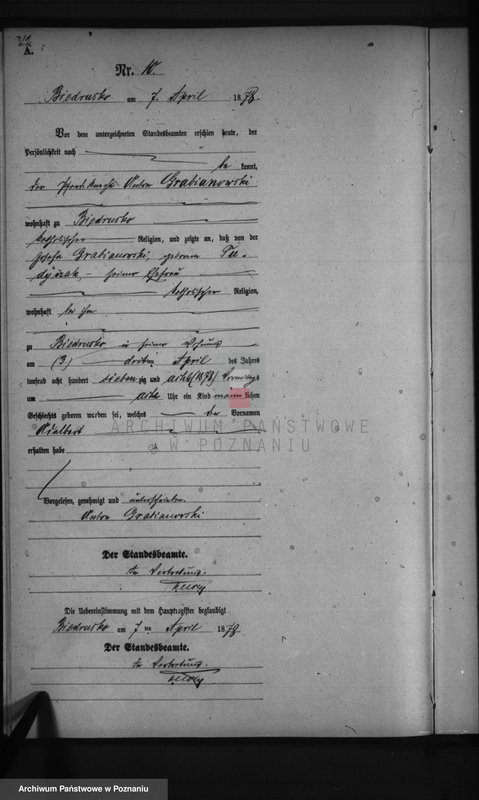 A.
Nr. 10.
Biedrusko am 7. April 1878.
Vor dem unterzeichneten Standesbeamten erschien heute, der
Persönlichkeit nach
be kannt,
der Pferdeknecht Anton Grabianowski
wohnhaft zu Biedrusko
katholischer Religion, und zeigte an, daß von der
Josefa Grabianowski, geborene
seiner Ehefrau
katholischer Religion,
wohnhaft bei ihm
zu Biedrusko in seiner Wohnung
am (3) dritten April des Jahres
tausend acht hundert siebenzig und acht (1878) Vormittags
um acht Uhr ein Kind männlichen
Geschlechts geboren worden sei, welches den Vornamen
Adalbert
erhalten habe
Vorgelesen, genehmigt und unterschrieben.
Anton Grabianowski
Der Standesbeamte.
In Vertretung.
Die Uebereinstimmung mit dem Hauptregister beglaubigt
Biedrusko am 7 ten April 1878
Der Standesbeamte.
In Vertretung.
ARCHIWUM PAŃSTWOWE
W POZNANIU
Archiwum Państwowe w Poznaniu